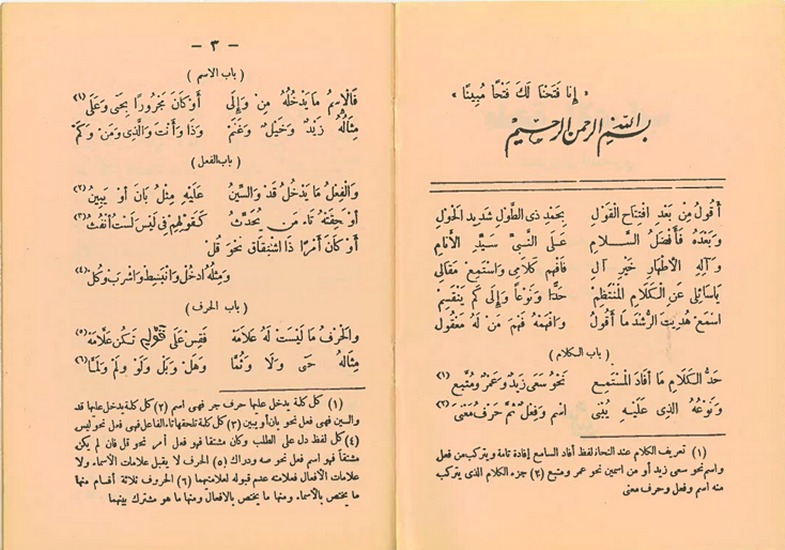 « إِنَّا فَتَحْنَا لَكَ فَتْحًا مُبِينًا »
بسم الله الرحمن الرحيم
أَقُولُ مِنْ بَعْدِ افْتِتَاحِ الْقَوْلِ بِحَمْدِ ذِى الطَّوْلِ شَدِيدِ الْحَوْلِ
وَبَعْدَهُ فَأَفْضَلُ السَّلَامِ عَلَى النَّبِىِّ سَيِّدِ الْأَنَامِ
وَآلِهِ الْأَطْهَارِ خَيْرِ آلِ فَافْهَمْ كَلَامِى وَاسْتَمِعْ مَقَالِى
يَا سَائِلِى عَنِ الْكَلَامِ الْمُنْتَظِمْ حَدًّا وَنَوْعًا وَإِلَى كَمْ يَنْقَسِمْ
اسْمَعْ هُدِيتَ الرُّشْدَ مَا أَقُولُ وَافْهَمْهُ فَهْمَ مَنْ لَهُ مَعْقُولُ
( باب الكلام )
حَدُّ الْكَلَامِ مَا أَفَادَ الْمُسْتَمِعْ نَحْوُ سَعَى زَيْدٌ وَعَمْرٌو مُتَّبِعْ (١)
وَنَوْعُهُ الذِى عَلَيْهِ يُبْنَى اسْمٌ وَفِعْلٌ ثُمَّ حَرْفُ مَعْنَى (٢)
(١) تعريف الكلام عند النحاة لفظ أفاد السامع إفادة تامة ويتركب من فعل
واسم نحو سعى زيد أو من اسمين نحو عمر ومتبع (٢) جزء الكلام الذى يتركب
منه اسم وفعل وحرف معنى
— ٣ —
( باب الاسم )
فَالْاِسْمُ مَا يَدْخُلُهُ مِنْ وَإِلَى أَوْ كَانَ مَجْرُورًا بِحَتَّى وَعَلَى (١)
مِثَالُهُ زَيْدٌ وَخَيْلٌ وَغَنَمْ وَذَا وَأَنْتَ وَالَّذِى وَمَنْ وَكَمْ
( باب الفعل )
وَالْفِعْلُ مَا يَدْخُلُ قَدْ وَالسِّينُ عَلَيْهِ مِثْلُ بَانَ أَوْ يَبِينُ (٢)
أَوْ لَحِقَتْهُ تَاءُ مَنْ يُحَدِّثُ كَقَوْلِهِمْ فِى لَيْسَ لَسْتُ أَنْفُثُ (٣)
أَوْ كَانَ أَمْرًا ذَا اشْتِقَاقٍ نَحْوَ قُلْ
وَمِثْلُهُ ادْخُلْ وَانْبَسِطْ وَاشْرَبْ وَكُلْ (٤)
( باب الحرف )
وَالْحَرْفُ مَا لَيْسَتْ لَهُ عَلَامَهْ فَقِسْ عَلَى قَوْلِى تَكُنْ عَلَّامَهْ (٥)
مِثَالُهُ حَتَّى وَلَا وَثُمَّا وَهَلْ وَبَلْ وَلَوْ وَلَمْ وَلَمَّا (٦)
(١) كل كلمة يدخل عليها حرف جر فهى اسم (٢) كل كلمة يدخل عليها قد
والسين فهى فعل نحو بان أو يبين (٣) كل كلمة تلحقها تاء الفاعل فهى فعل نحو ليس
(٤) كل لفظ دل على الطلب وكان مشتقا فهو فعل أمر نحو قل فان لم يكن
مشتقاً فهو اسم فعل نحو صه ودراك (٥) الحرف لا يقبل علامات الأسماء ولا
علامات الأفعال فعلامته عدم قبوله لعلامتهما (٦) الحروف ثلاثة أقسام منها
ما يختص بالأسماء، ومنها ما يختص بالأفعال ومنها ما هو مشترك بينهما